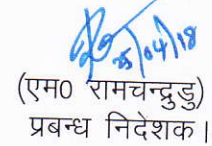 25/04/18
(एम0 रामचन्द्रुडु)
प्रबन्ध निदेशक।